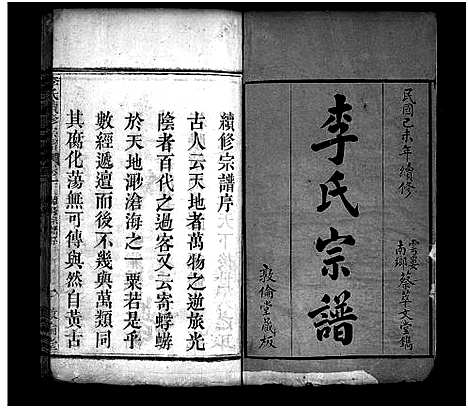 民國己未年續修
李氏宗譜
敦倫堂藏板
南鄉蔡萃文堂鐫
續修宗譜序
古人云天地者萬物之逆旅光
陰者百代之過客又云寄蜉蝣
於天地渺滄海之一粟若是乎
數經遞遭而後不幾與萬類同
其腐化蕩無可傳與然自黃古